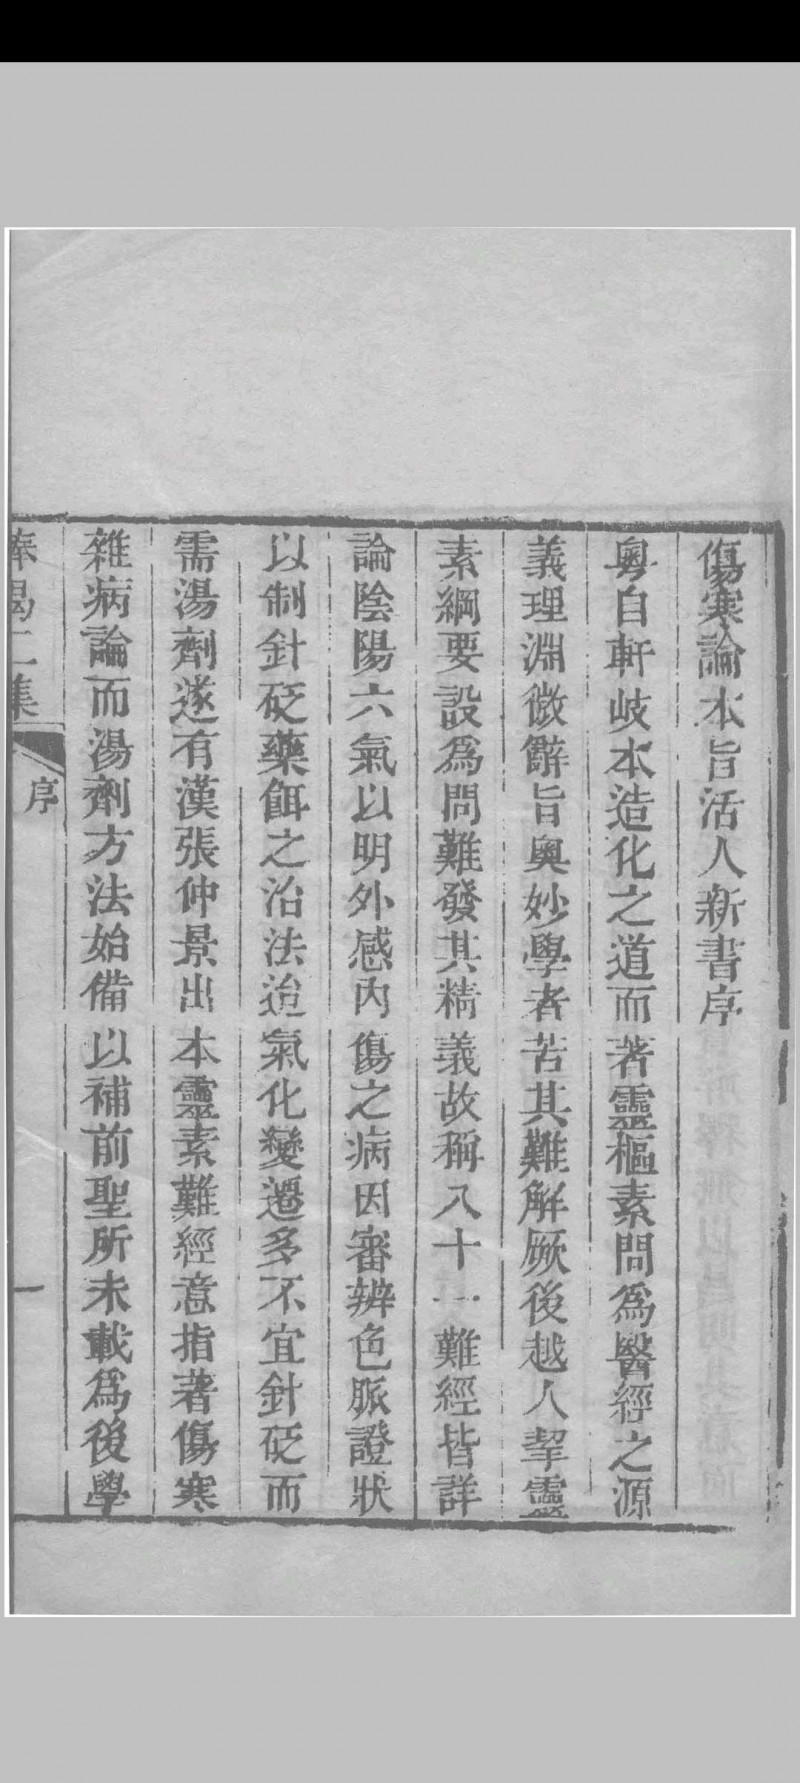 傷寒論本旨活人新書序
粵自軒岐本造化之道而著靈樞素問爲醫經之源
義理淵微辭旨奧妙學者苦其難解厥後越人挈靈
素綱要設爲問難發其精義故稱八十一難經皆詳
論陰陽六氣以明外感內傷之病因審辨色脈證狀
以制針砭藥餌之治法迨氣化變遷多不宜針砭而
需湯劑遂有漢張仲景出本靈素難經意指著傷寒
雜病論而湯劑方法始備以補前聖所未載爲後學
序
一